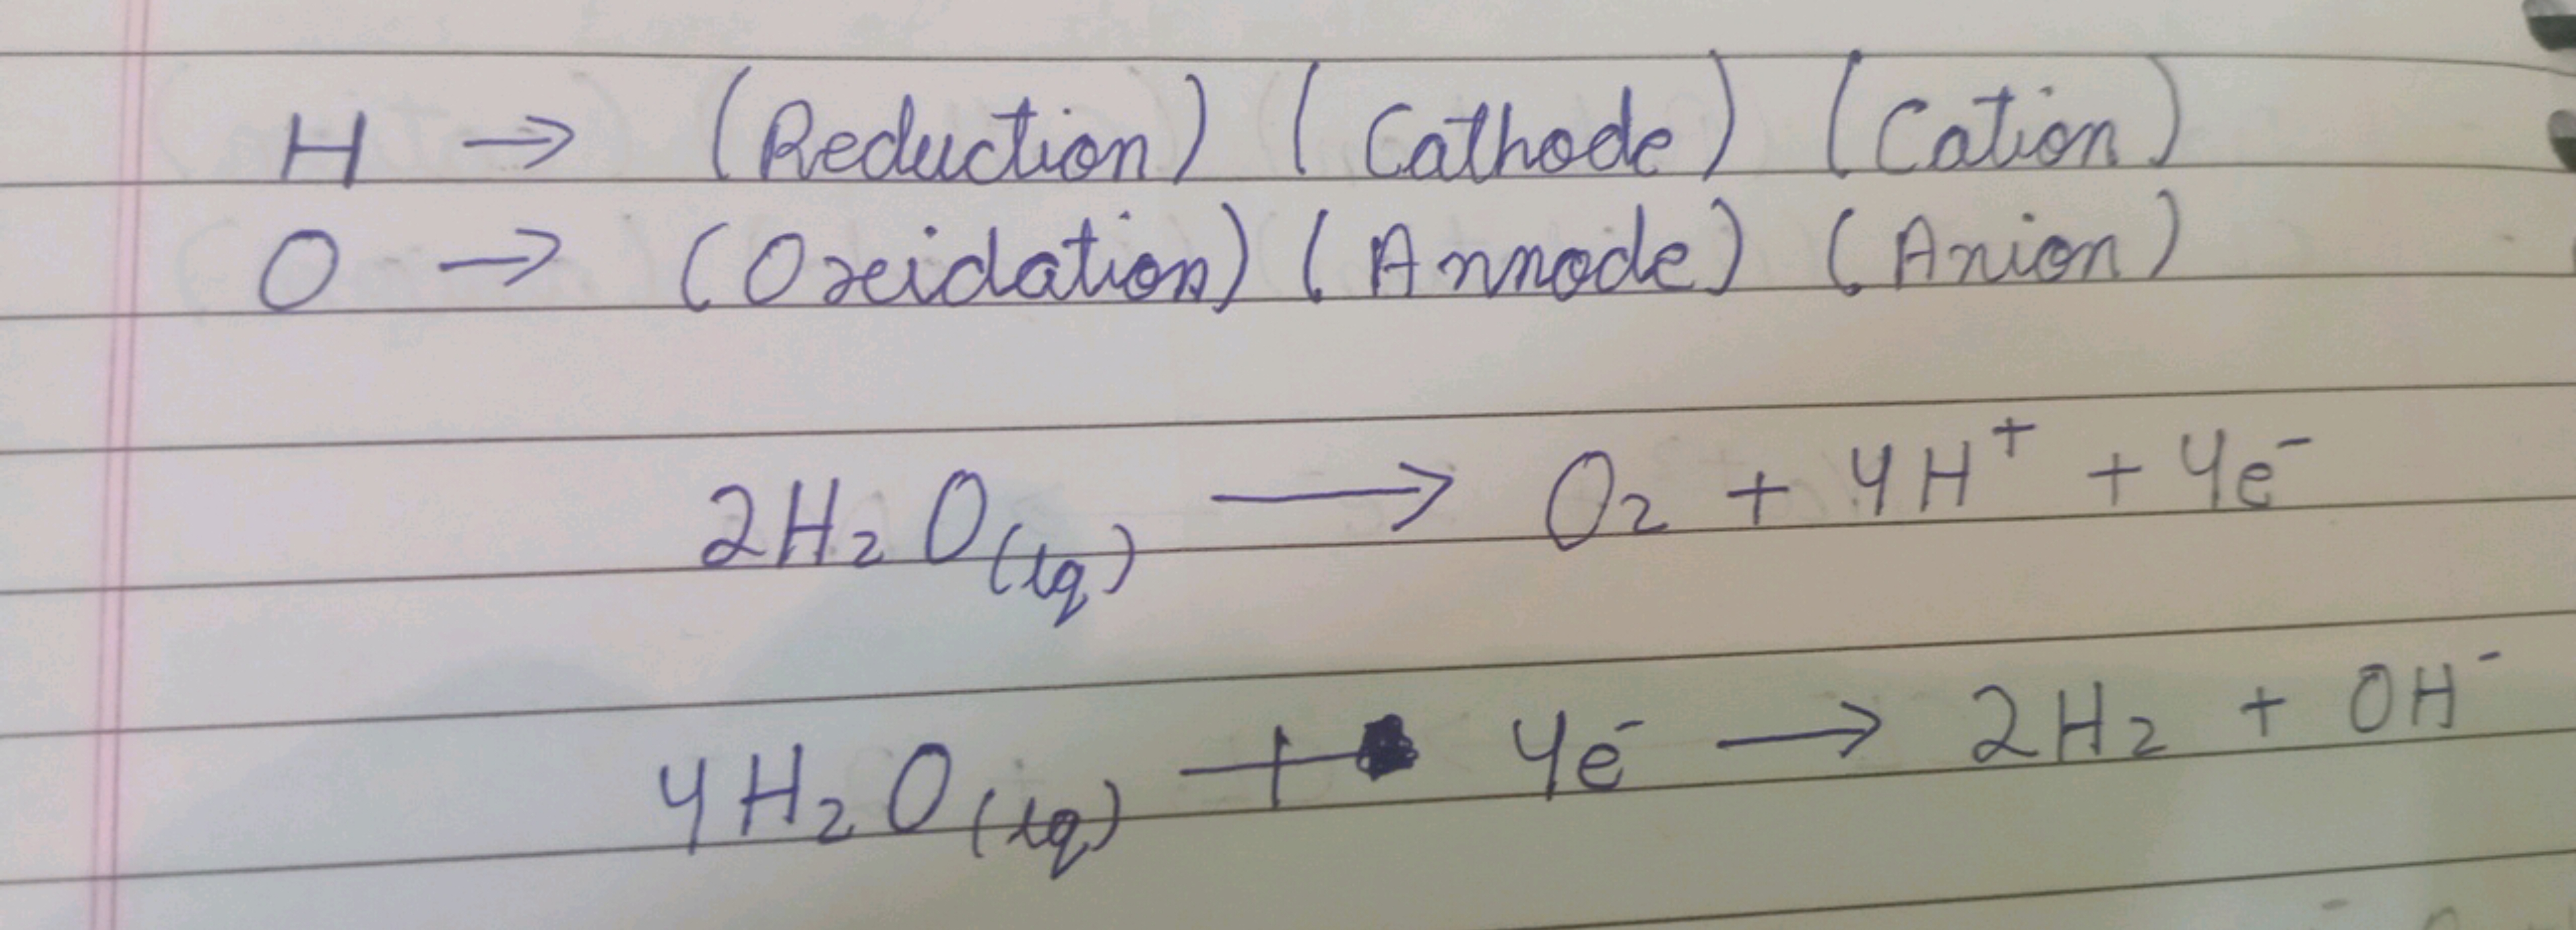 H → (Reduction) (Cathode) (Cation)
O → (Oxidation) (Annode) (Anion)
2H₂O(lq) → O₂ + 4H⁺ + 4e⁻
4H₂O(lq) + 4e⁻ → 2H₂ + OH⁻